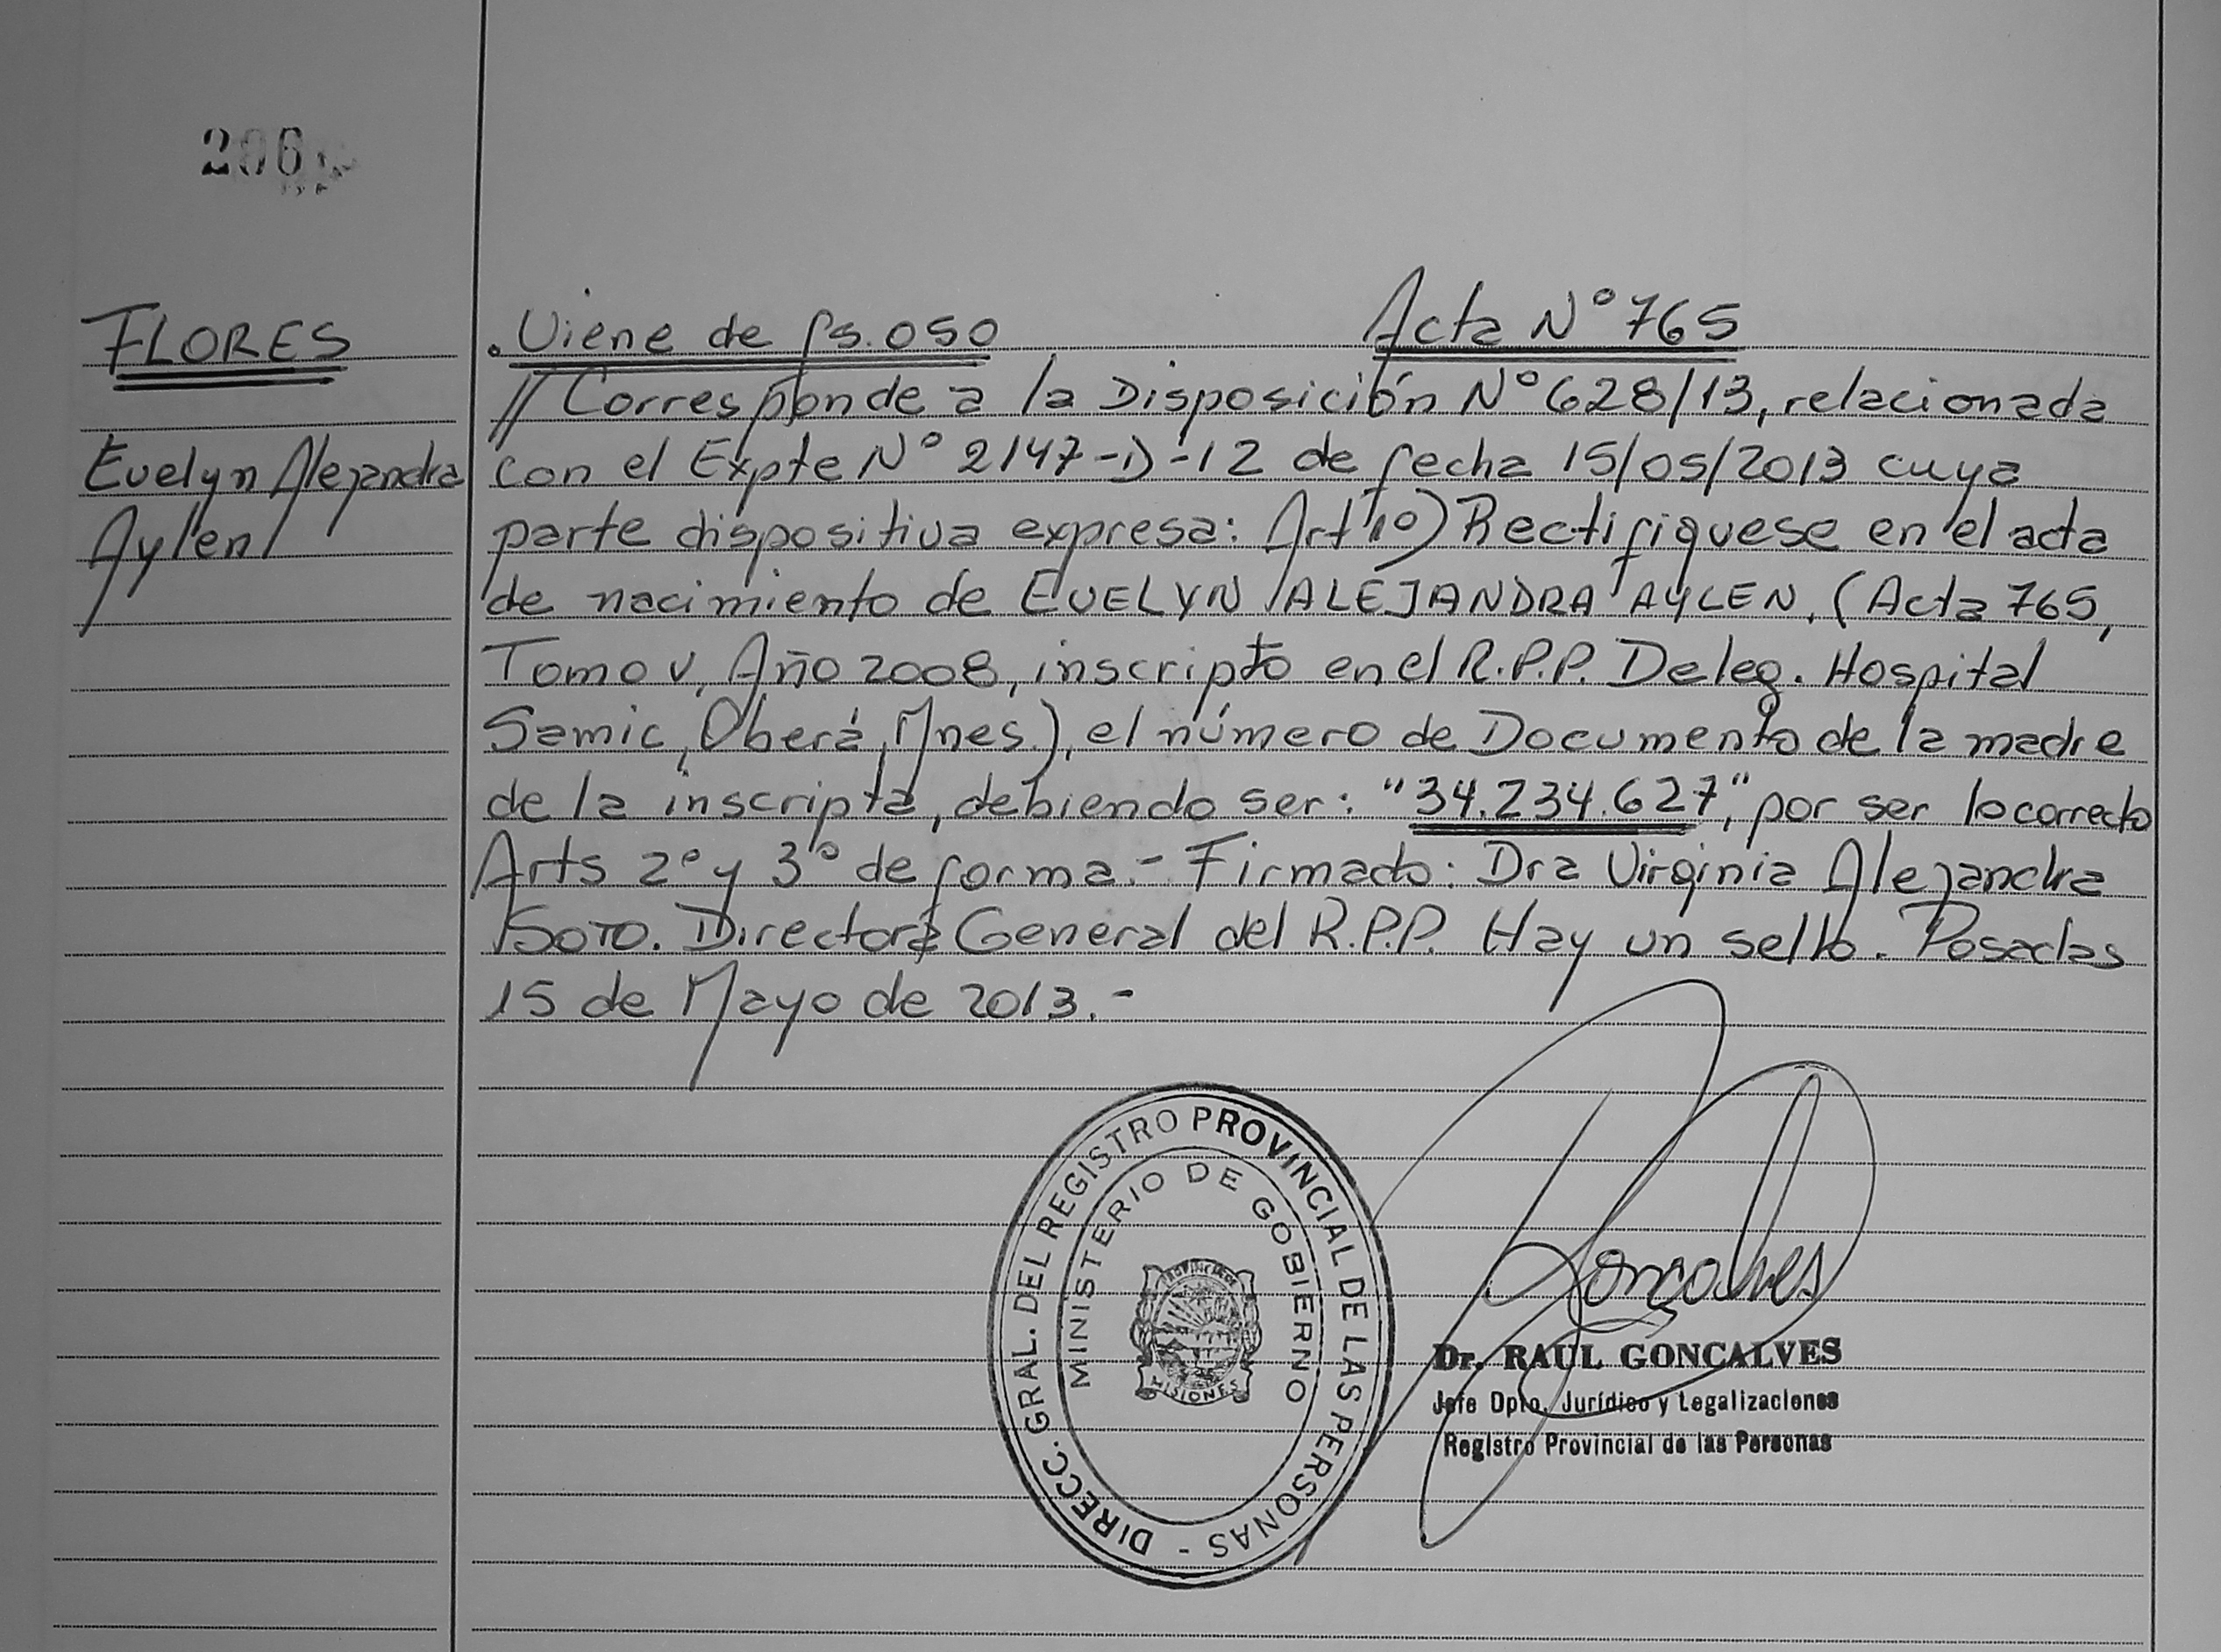 206
FLORES
Evelyn Alejandra
Aylen
. Viene de fs. 050 Acta N° 765
// Corresponde a la Disposición N° 628/13, relacionada
con el Expte N° 2147-D-12 de fecha 15/05/2013 cuya
parte dispositiva expresa: Art 1°) Rectifiquese en el acta
de nacimiento de EVELYN ALEJANDRA AYLEN, (Acta 765,
Tomo V, Año 2008, inscripto en el R.P.P. Deleg. Hospital
Samic, Oberá, Mnes.), el número de Documento de la madre
de la inscripta, debiendo ser: "34.234.627", por ser lo correcto
Arts 2° y 3° de forma.- Firmado: Dra Virginia Alejandra
SOTO. Directora General del R.P.P. Hay un sello. Posadas
15 de Mayo de 2013.-
DIRECC. GRAL. DEL REGISTRO PROVINCIAL DE LAS PERSONAS -
MINISTERIO DE GOBIERNO
PROVINCIA DE
MISIONES
Gonçalves
Dr. RAUL GONCALVES
Jefe Dpto. Jurídico y Legalizaciones
Registro Provincial de las Personas